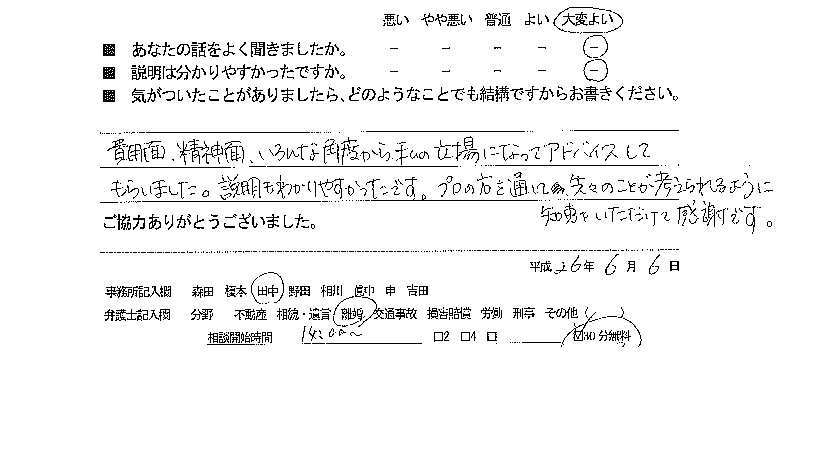 悪い やや悪い 普通 よい 大変よい
■ あなたの話をよく聞きましたか。 － － － － －
■ 説明は分かりやすかったですか。 － － － － －
■ 気がついたことがありましたら、どのようなことでも結構ですからお書きください。
費用面、精神面、いろんな角度から、私の立場になってアドバイスして
もらいました。説明もわかりやすかったです。プロの方を通して、先々のことが考えられるように
知恵をいただけて感謝です。
ご協力ありがとうございました。
平成 26 年 6 月 6 日
事務所記入欄 森田 榎本 田中 野田 相川 畠中 申 吉田
弁護士記入欄 分野 不動産 相続・遺言 離婚 交通事故 損害賠償 労働 刑事 その他 ( )
相談開始時間 14:00～ □2 □4 □ ☑30分無料